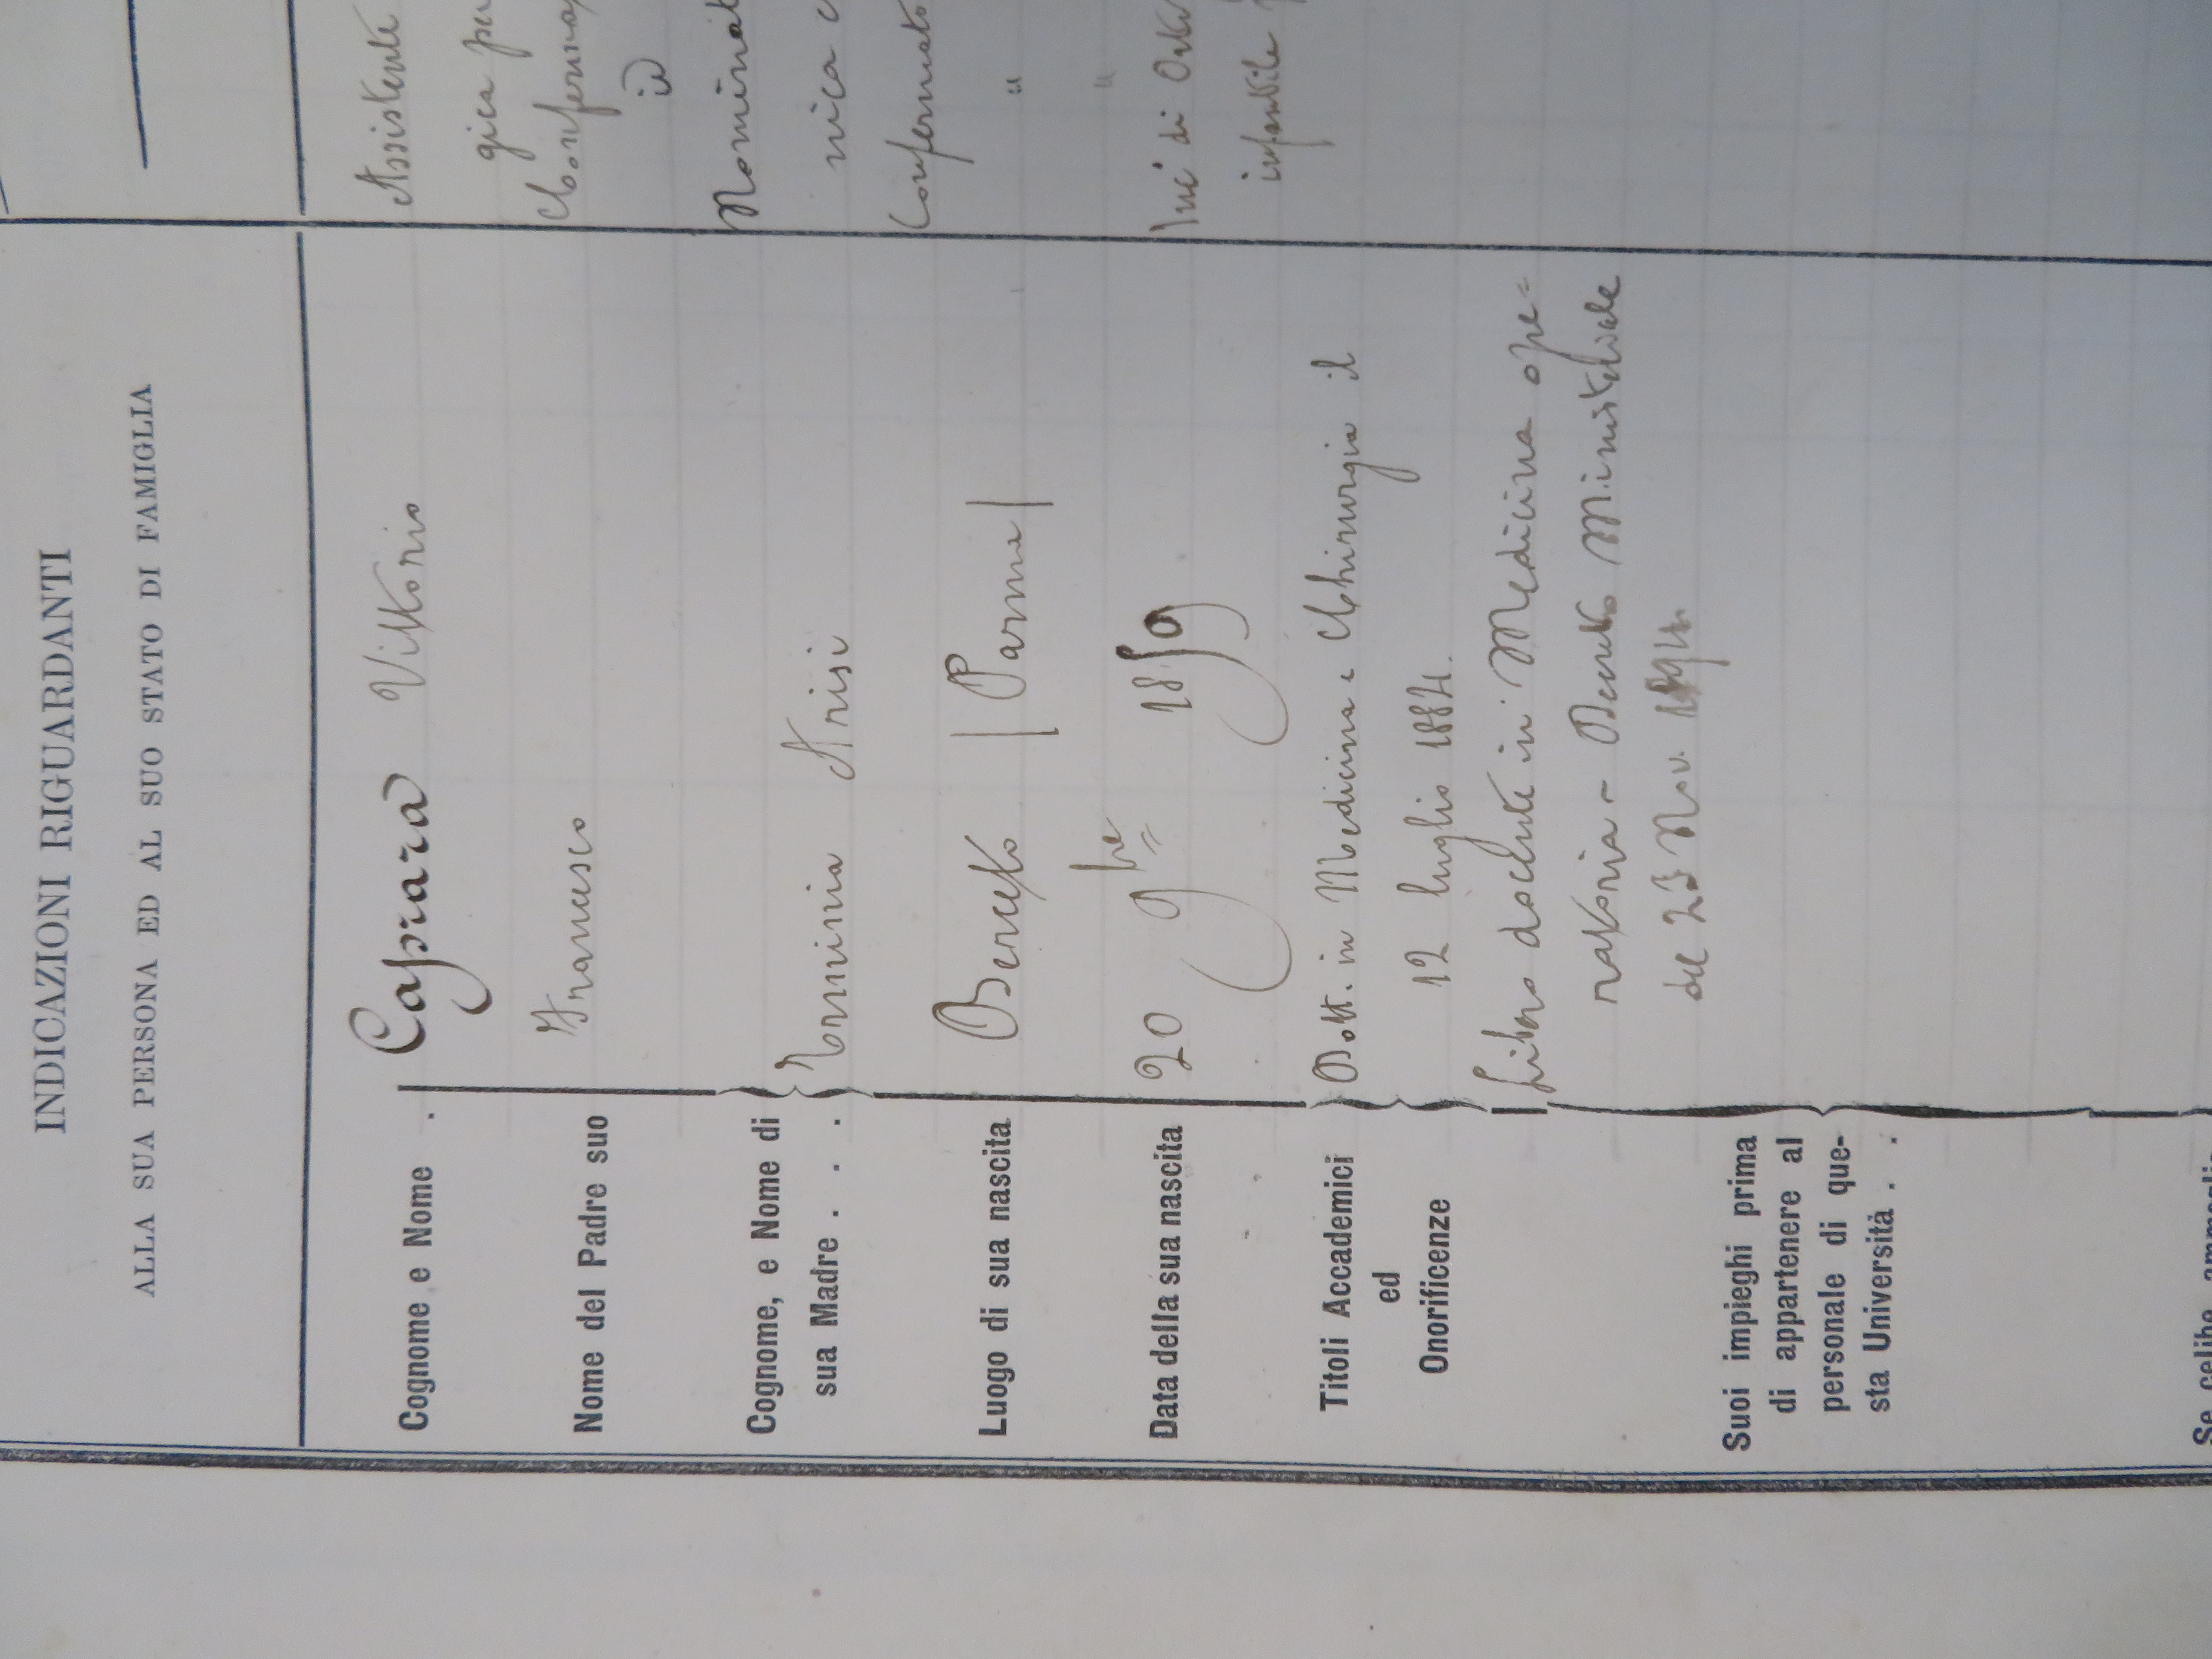 INDICAZIONI RIGUARDANTI
ALLA SUA PERSONA ED AL SUO STATO DI FAMIGLIA
Cognome e Nome . Caprara Vittorio
Nome del Padre suo Francesco
Cognome, e Nome di
sua Madre . . . Erminia Arisi
Luogo di sua nascita Berceto | Parma |
Data della sua nascita 20 9bre 1859
Titoli Accademici
ed
Onorificenze
Dott. in Medicina e Chirurgia il
12 luglio 1884.
Libero docente in Medicina ope=
ratoria - Decreto Ministeriale
del 23 Nov.
Suoi impieghi prima
di appartenere al
personale di que-
sta Università . .
Se celibe
Assistente
gica per
Confermato
id
Nominat
nica c
Confermato
" "
Inc. di
infantile